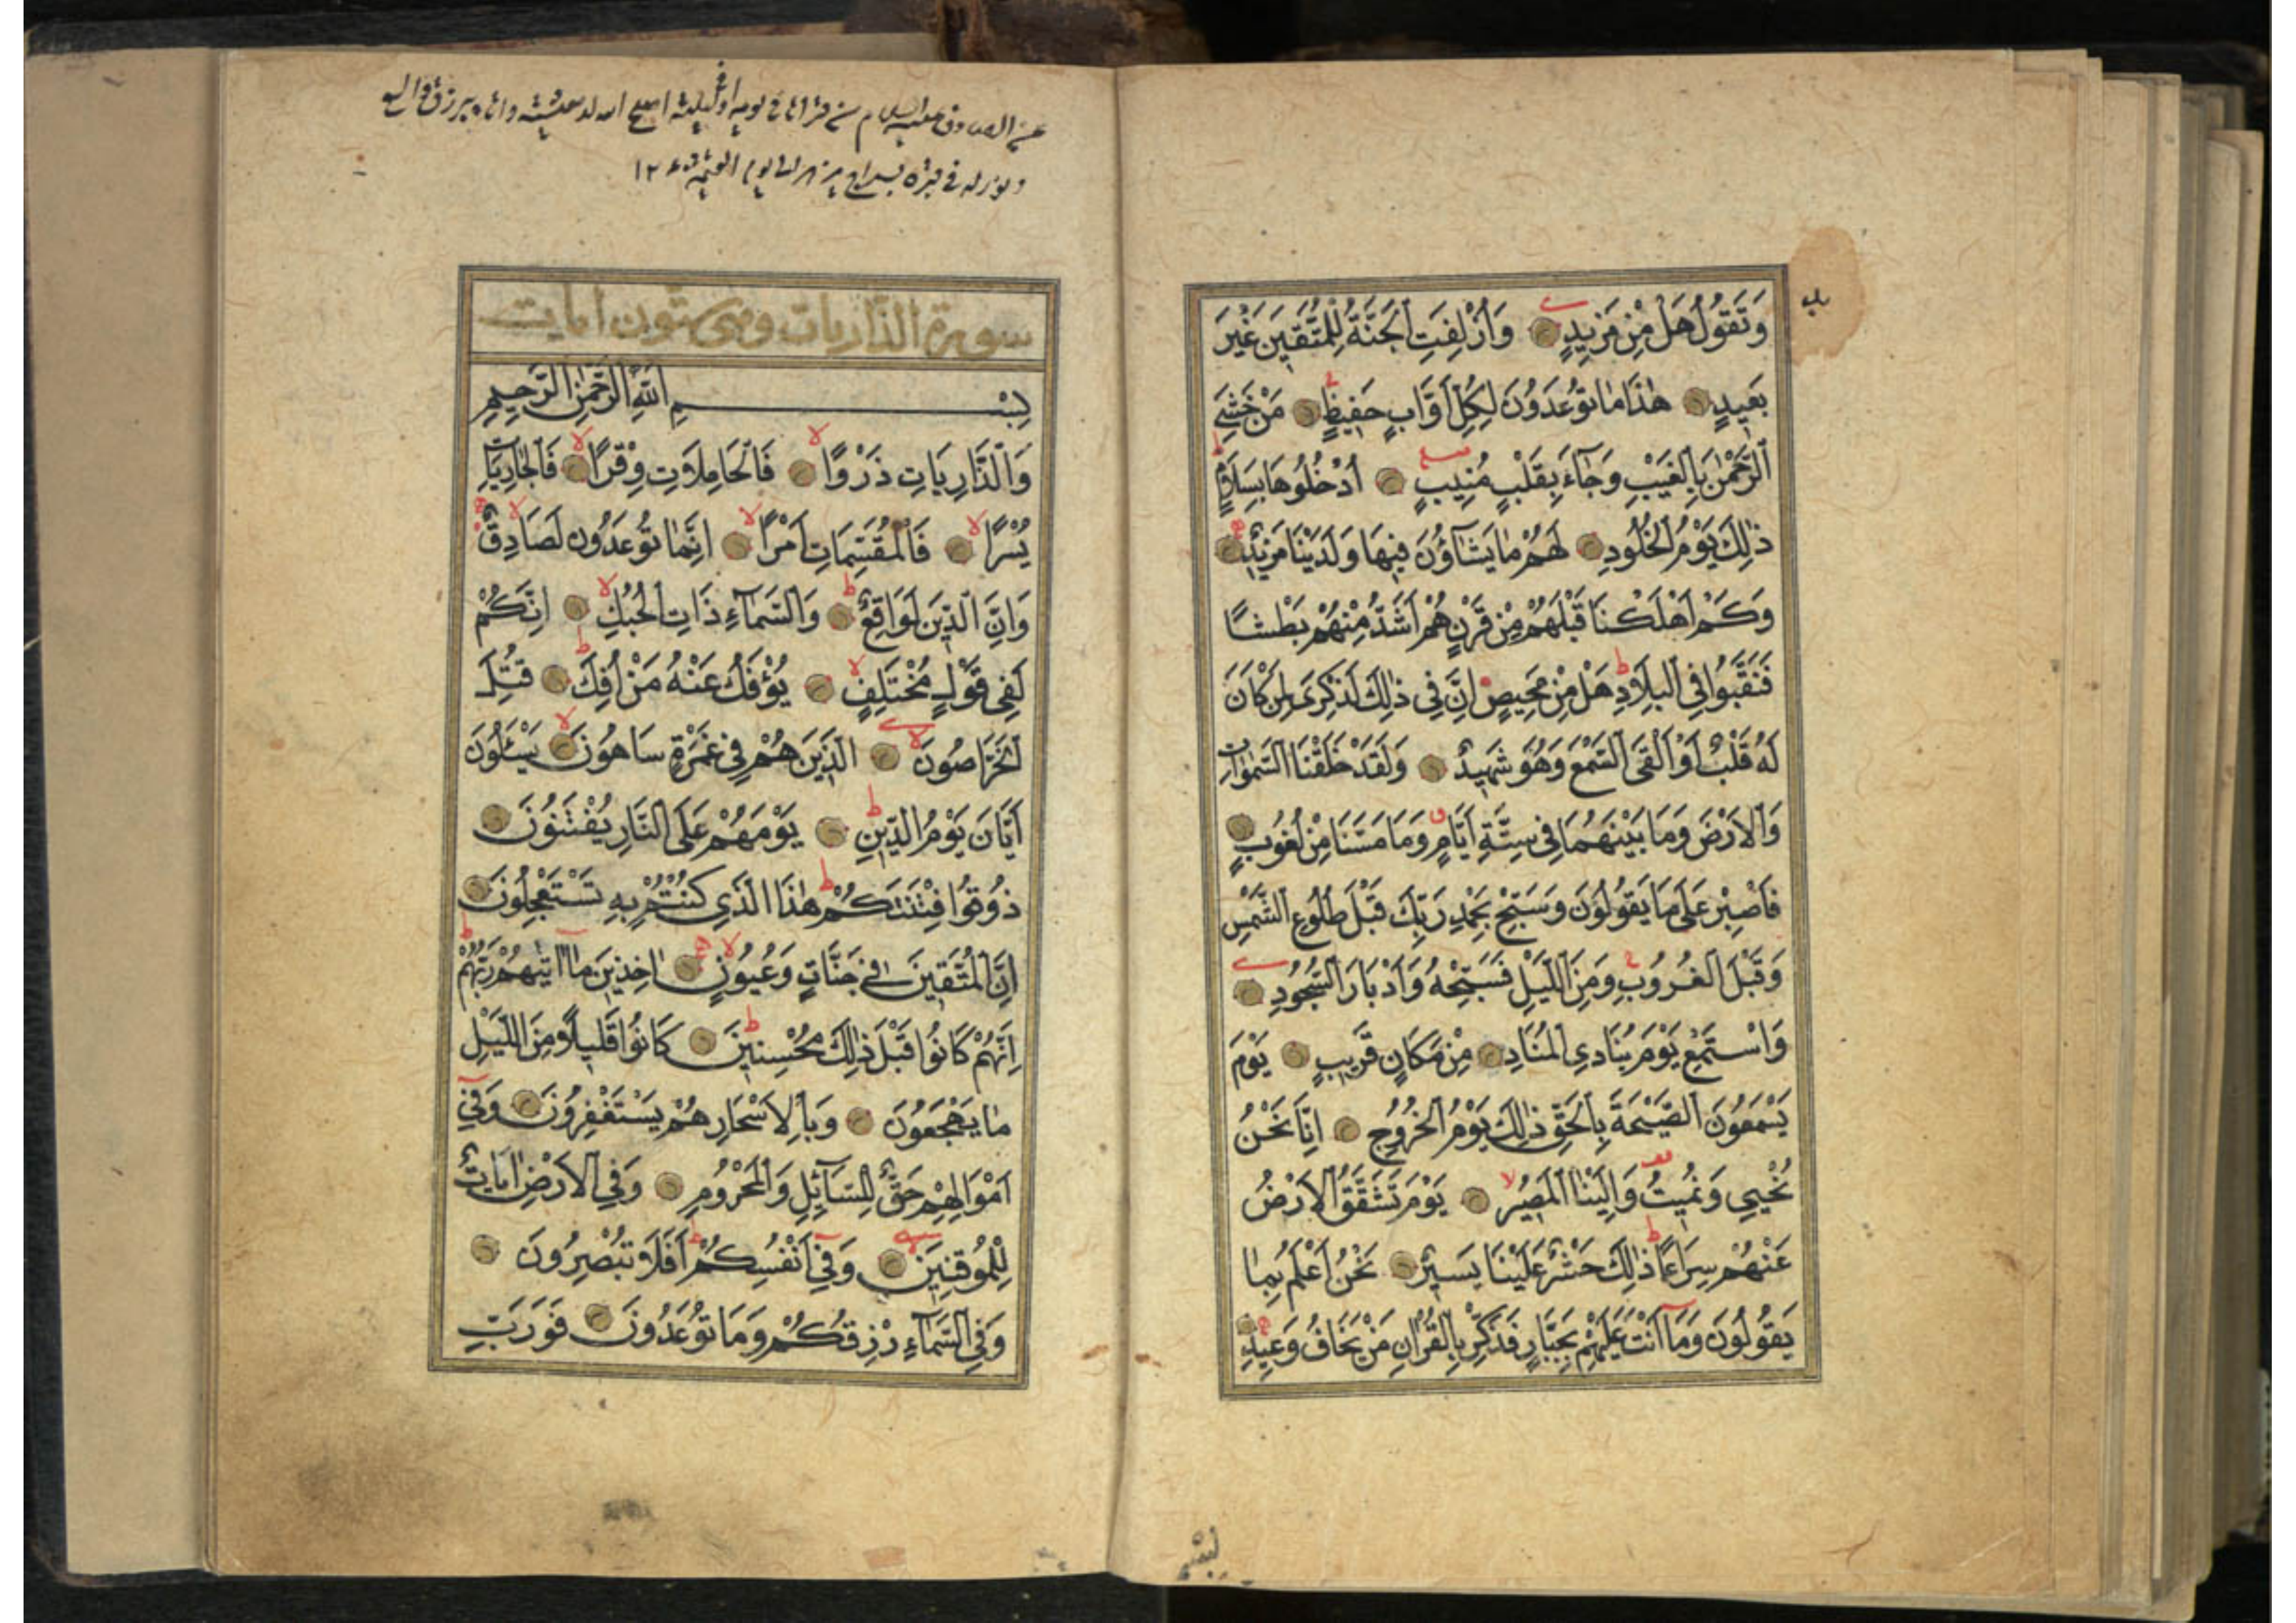 وَتَقُولُ هَلْ مِنْ مَزِيدٍ وَأُزْلِفَتِ الْجَنَّةُ لِلْمُتَّقِينَ غَيْرَ
بَعِيدٍ هٰذَا مَا تُوعَدُونَ لِكُلِّ أَوَّابٍ حَفِيظٍ مَنْ خَشِيَ
الرَّحْمٰنَ بِالْغَيْبِ وَجَآءَ بِقَلْبٍ مُنِيبٍ اُدْخُلُوهَا بِسَلَامٍ
ذٰلِكَ يَوْمُ الْخُلُودِ لَهُمْ مَا يَشَاؤُنَ فِيهَا وَلَدَيْنَا مَزِيدٌ
وَكَمْ اَهْلَكْنَا قَبْلَهُمْ مِنْ قَرْنٍ هُمْ اَشَدُّ مِنْهُمْ بَطْشًا
فَنَقَّبُوا فِي الْبِلَادِ هَلْ مِنْ مَحِيصٍ اِنَّ فِي ذٰلِكَ لَذِكْرَى لِمَنْ كَانَ
لَهُ قَلْبٌ اَوْ اَلْقَى السَّمْعَ وَهُوَ شَهِيدٌ وَلَقَدْ خَلَقْنَا السَّمٰوَاتِ
وَالْاَرْضَ وَمَا بَيْنَهُمَا فِي سِتَّةِ اَيَّامٍ وَمَا مَسَّنَا مِنْ لُغُوبٍ
فَاصْبِرْ عَلَى مَا يَقُولُونَ وَسَبِّحْ بِحَمْدِ رَبِّكَ قَبْلَ طُلُوعِ الشَّمْسِ
وَقَبْلَ الْغُرُوبِ وَمِنَ اللَّيْلِ فَسَبِّحْهُ وَاَدْبَارَ السُّجُودِ
وَاسْتَمِعْ يَوْمَ يُنَادِي الْمُنَادِ مِنْ مَكَانٍ قَرِيبٍ يَوْمَ
يَسْمَعُونَ الصَّيْحَةَ بِالْحَقِّ ذٰلِكَ يَوْمُ الْخُرُوجِ اِنَّا نَحْنُ
نُحْيِي وَنُمِيتُ وَاِلَيْنَا الْمَصِيرُ يَوْمَ تَشَقَّقُ الْاَرْضُ
عَنْهُمْ سِرَاعًا ذٰلِكَ حَشْرٌ عَلَيْنَا يَسِيرٌ نَحْنُ اَعْلَمُ بِمَا
يَقُولُونَ وَمَا اَنْتَ عَلَيْهِمْ بِجَبَّارٍ فَذَكِّرْ بِالْقُرْاٰنِ مَنْ يَخَافُ وَعِيدِ
عن الصادق عليه السلام من قراها في يومه او في ليلته اصلح الله له معيشته واتاه برزق واسع
ونور له في قبره بسراج يزهر الى يوم القيمة
سورة الذّاريات وهى ستون اٰيات
بِسْمِ اللّٰهِ الرَّحْمٰنِ الرَّحِيمِ
وَالذَّارِيَاتِ ذَرْوًا فَالْحَامِلَاتِ وِقْرًا فَالْجَارِيَاتِ
يُسْرًا فَالْمُقَسِّمَاتِ اَمْرًا اِنَّمَا تُوعَدُونَ لَصَادِقٌ
وَاِنَّ الدِّينَ لَوَاقِعٌ وَالسَّمَآءِ ذَاتِ الْحُبُكِ اِنَّكُمْ
لَفِي قَوْلٍ مُخْتَلِفٍ يُؤْفَكُ عَنْهُ مَنْ اُفِكَ قُتِلَ
الْخَرَّاصُونَ الَّذِينَ هُمْ فِي غَمْرَةٍ سَاهُونَ يَسْـَٔلُونَ
اَيَّانَ يَوْمُ الدِّينِ يَوْمَ هُمْ عَلَى النَّارِ يُفْتَنُونَ
ذُوقُوا فِتْنَتَكُمْ هٰذَا الَّذِي كُنْتُمْ بِهِ تَسْتَعْجِلُونَ
اِنَّ الْمُتَّقِينَ فِي جَنَّاتٍ وَعُيُونٍ اٰخِذِينَ مَا اٰتٰيهُمْ رَبُّهُمْ
اِنَّهُمْ كَانُوا قَبْلَ ذٰلِكَ مُحْسِنِينَ كَانُوا قَلِيلًا مِنَ اللَّيْلِ
مَا يَهْجَعُونَ وَبِالْاَسْحَارِ هُمْ يَسْتَغْفِرُونَ وَفِي
اَمْوَالِهِمْ حَقٌّ لِلسَّآئِلِ وَالْمَحْرُومِ وَفِي الْاَرْضِ اٰيَاتٌ
لِلْمُوقِنِينَ وَفِي اَنْفُسِكُمْ اَفَلَا تُبْصِرُونَ
وَفِي السَّمَآءِ رِزْقُكُمْ وَمَا تُوعَدُونَ فَوَرَبِّ